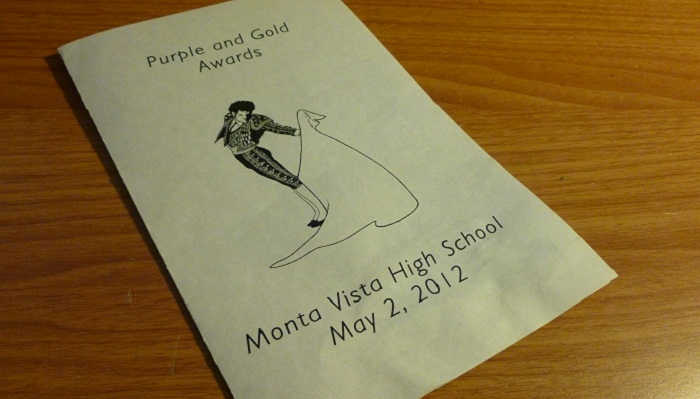 Purple and Gold
Awards
Monta Vista High School
May 2, 2012